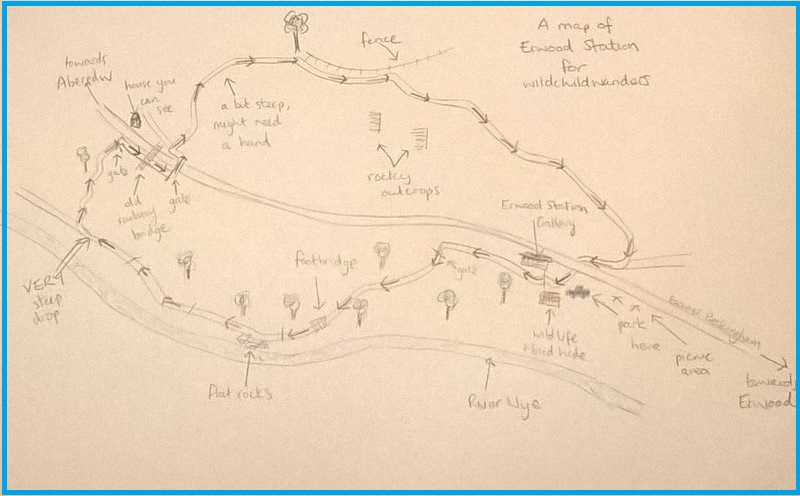 A map of
Erwood Station
for
wildchildwanders
fence
towards
Aberedw
house you
can
see
a bit steep,
might need
a hand
rocky
outcrops
gate
old
railway
bridge
gate
Erwood Station
Gallery
footbridge
gate
VERY
steep
drop
wildlife
+ bird hide
park
here
picnic
area
towards
Erwood
flat rocks
River Wye